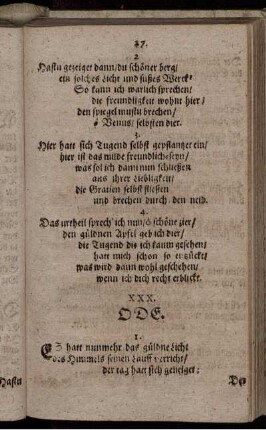 27.
2.
Hastu gezeiget dann/ du schöner berg/
ein solches Licht und süßes Werck?
So kann ich warlich sprechen/
die freundligkeit wohnt hier/
den spiegel mustu brechen/
ô Venus/ selbsten dier.
3.
Hier hatt sich Tugend selbst gepflantzet ein/
hier ist das milde freundlich-seyn/
was sol ich dann nun schließen
aus ihrer liebligkeit/
die Gratien selbst fliessen
und brechen durch den neid.
4.
Das urtheil sprech' ich nun/ ô schöne zier/
den güldnen Apfel geb ich dier/
die Tugend die ich kaum gesehen/
hatt mich schon so entzückt/
was wird dann wohl geschehen/
wenn ich dich recht erblickt.
XXX.
ODE.
1.
ES hatt nunmehr das güldne Licht
des Himmels seinen Lauff verricht/
der tag hatt sich geneiget:
Hastu
Der